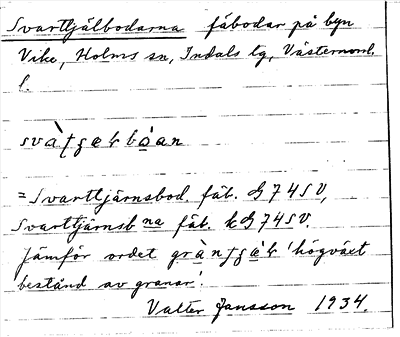 Svarttjälbodarna fäbodar på byn
Vike, Holms sn, Indals tg, Västernorrl.
l.
svàʈʂœɫbóan
= Svarttjärnsbod. fäb. G74SV,
Svarttjärnsbna fäb. kG74SV.
Jämför ordet 'högväxt
bestånd av granar'.
Valter Jansson 1934.